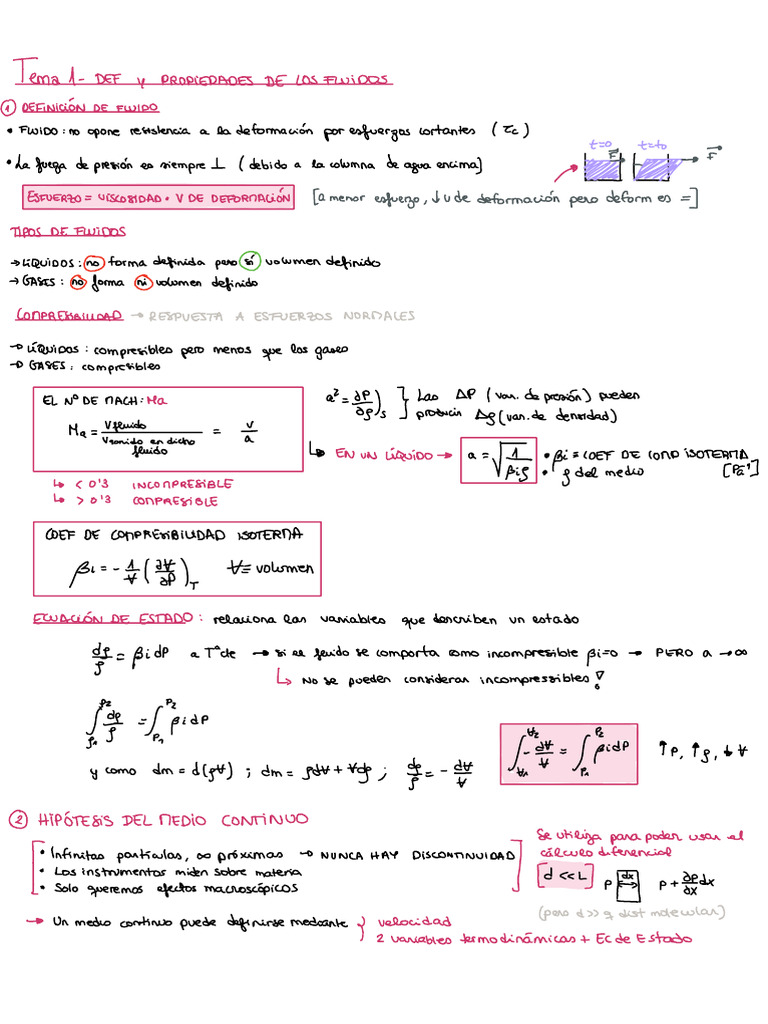 Tema 1 - DEF y PROPIEDADES DE LOS FLUIDOS
① DEFINICIÓN DE FLUIDO
• FLUIDO: no opone resistencia a la deformación por esfuerzos cortantes (τc)
• La fuerza de presión es siempre ⊥ (debido a la columna de agua encima)
t=0 t=t₀
F F
ESFUERZO = VISCOSIDAD · V DE DEFORMACIÓN [a menor esfuerzo, ↓ V de deformación pero deform es =]
TIPOS DE FLUIDOS
→ LÍQUIDOS: no forma definida pero sí volumen definido
→ GASES: no forma ni volumen definido
COMPRESIBILIDAD → RESPUESTA A ESFUERZOS NORMALES
→ LÍQUIDOS: compresibles pero menos que los gases
→ GASES: compresibles
EL Nº DE MACH: Ma
Ma = V fluido / V sonido en dicho fluido = V / a
a² = ∂P/∂ρ)s } Las ΔP (var. de presión) pueden
producir Δρ (var. de densidad)
↳ EN UN LÍQUIDO → a = √(1/βiρ) • βi = COEF DE COMP ISOTERMA
• ρ del medio [Pa⁻¹]
↳ < 0'3 INCOMPRESIBLE
↳ > 0'3 COMPRESIBLE
COEF DE COMPRESIBILIDAD ISOTERMA
βi = - 1/V (∂V/∂P)T V = volumen
ECUACIÓN DE ESTADO: relaciona las variables que describen un estado
dρ/ρ = βi dP a Tª cte → si el fluido se comporta como incompresible βi=0 → PERO a → ∞
↳ No se pueden considerar incompressibles!
∫ρ1^ρ2 dρ/ρ = ∫P1^P2 βi dP
∫V1^V2 - dV/V = ∫P1^P2 βi dP ↑P, ↑ρ, ↓V
y como dm = d(ρV) ; dm = ρdV + Vdρ ; dρ/ρ = - dV/V
② HIPÓTESIS DEL MEDIO CONTINUO
• Infinitas partículas, ∞ próximas → NUNCA HAY DISCONTINUIDAD
• Los instrumentos miden sobre materia
• Solo queremos efectos macroscópicos
Se utiliza para poder usar el
cálculo diferencial
d << L P dx P + ∂P/∂x dx
(pero d >> q dist molecular)
→ Un medio continuo puede definirse mediante } velocidad
2 variables termodinámicas + Ec de Estado